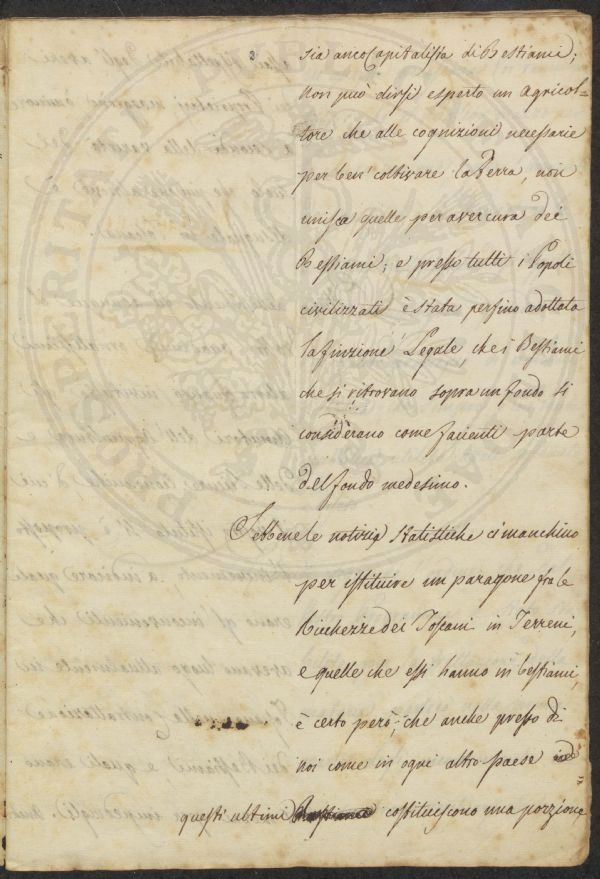 3
sia anco Capitalista di Bestiami;
non può dirsi esperto un Agricol=
tore che alle cognizioni necessarie
per ben' coltivare la Terra, non
unisca quelle per aver cura dei
Bestiami; e presso tutti i Popoli
civilizzati è stata perfino adottata
la finzione Legale, che i Bestiami
che si ritrovano sopra un fondo si
considerano come facienti parte
del fondo medesimo.
Sebbene le notizie statistiche ci manchino
per istituire un paragone fra le
Ricchezze dei Toscani in Terreni,
e quelle che essi hanno in bestiami,
è certo però, che anche presso di
noi come in ogni altro paese
questi ultimi costituiscono una porzione